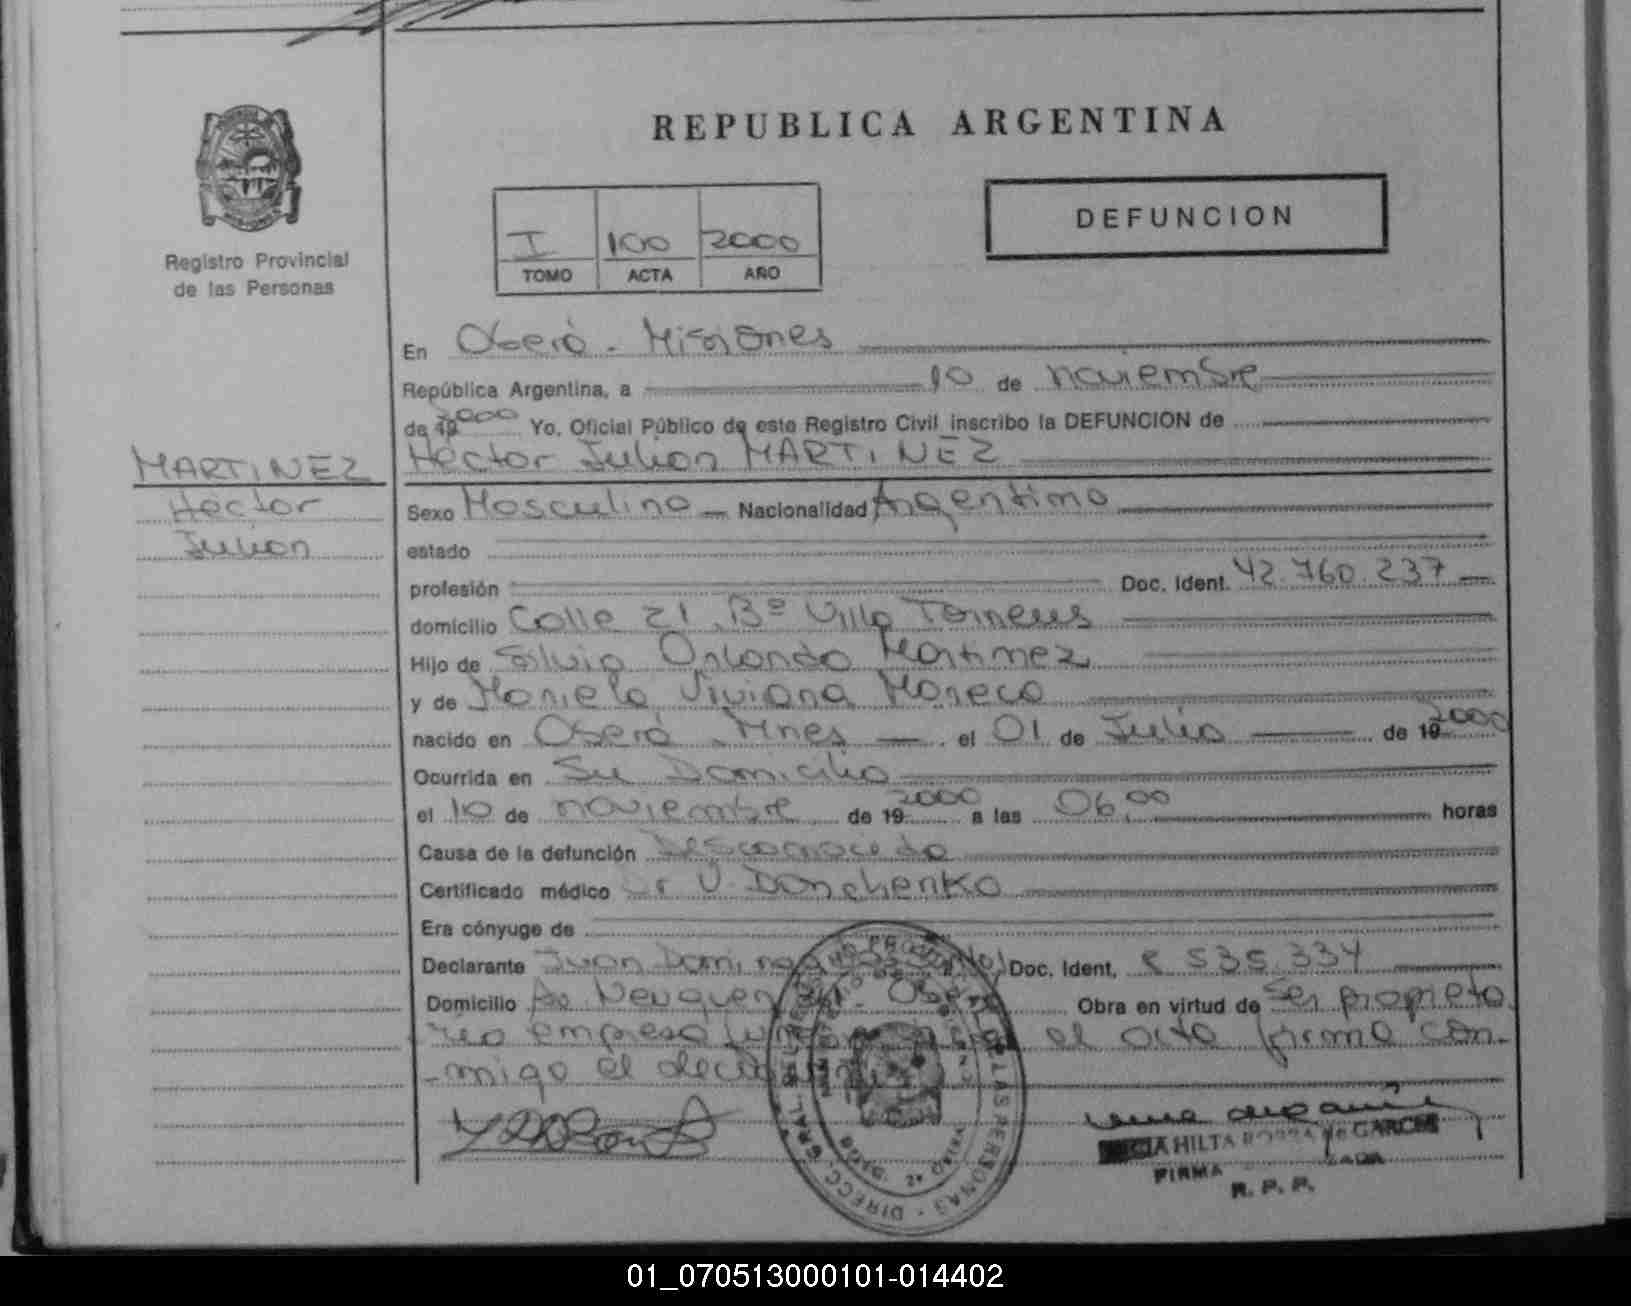 REPUBLICA ARGENTINA
Registro Provincial
de las Personas
I 100 2000
TOMO ACTA AÑO
DEFUNCION
En Oberá - Misiones
República Argentina, a 10 de noviembre
de 19 2000 Yo. Oficial Público de este Registro Civil inscribo la DEFUNCION de
MARTINEZ
Hector
Julian
Hector Julian MARTINEZ
Sexo Masculino Nacionalidad Argentina
estado
profesión Doc. Ident. 42.760.237
domicilio Calle 21 Bº Villa
Hijo de Silvio Orlando Martinez
y de Mariela Viviana Mareco
nacido en Oberá - Mnes el 01 de Julio de 19 2000
Ocurrida en Su Domicilio
el 10 de noviembre de 19 2000 a las 06,00 horas
Causa de la defunción Desconocida
Certificado médico Dr V. Donchenko
Era cónyuge de
Declarante Juan Doc. Ident. 8 535.334
Domicilio Av. Neuquen Obra en virtud de Ser propieta
rio empresa el acta firma con-
-migo el
HILTA DE GARCIA
FIRMA
R. P. P.
DIRECC. GRAL. LAS PERSONAS
01_070513000101-014402